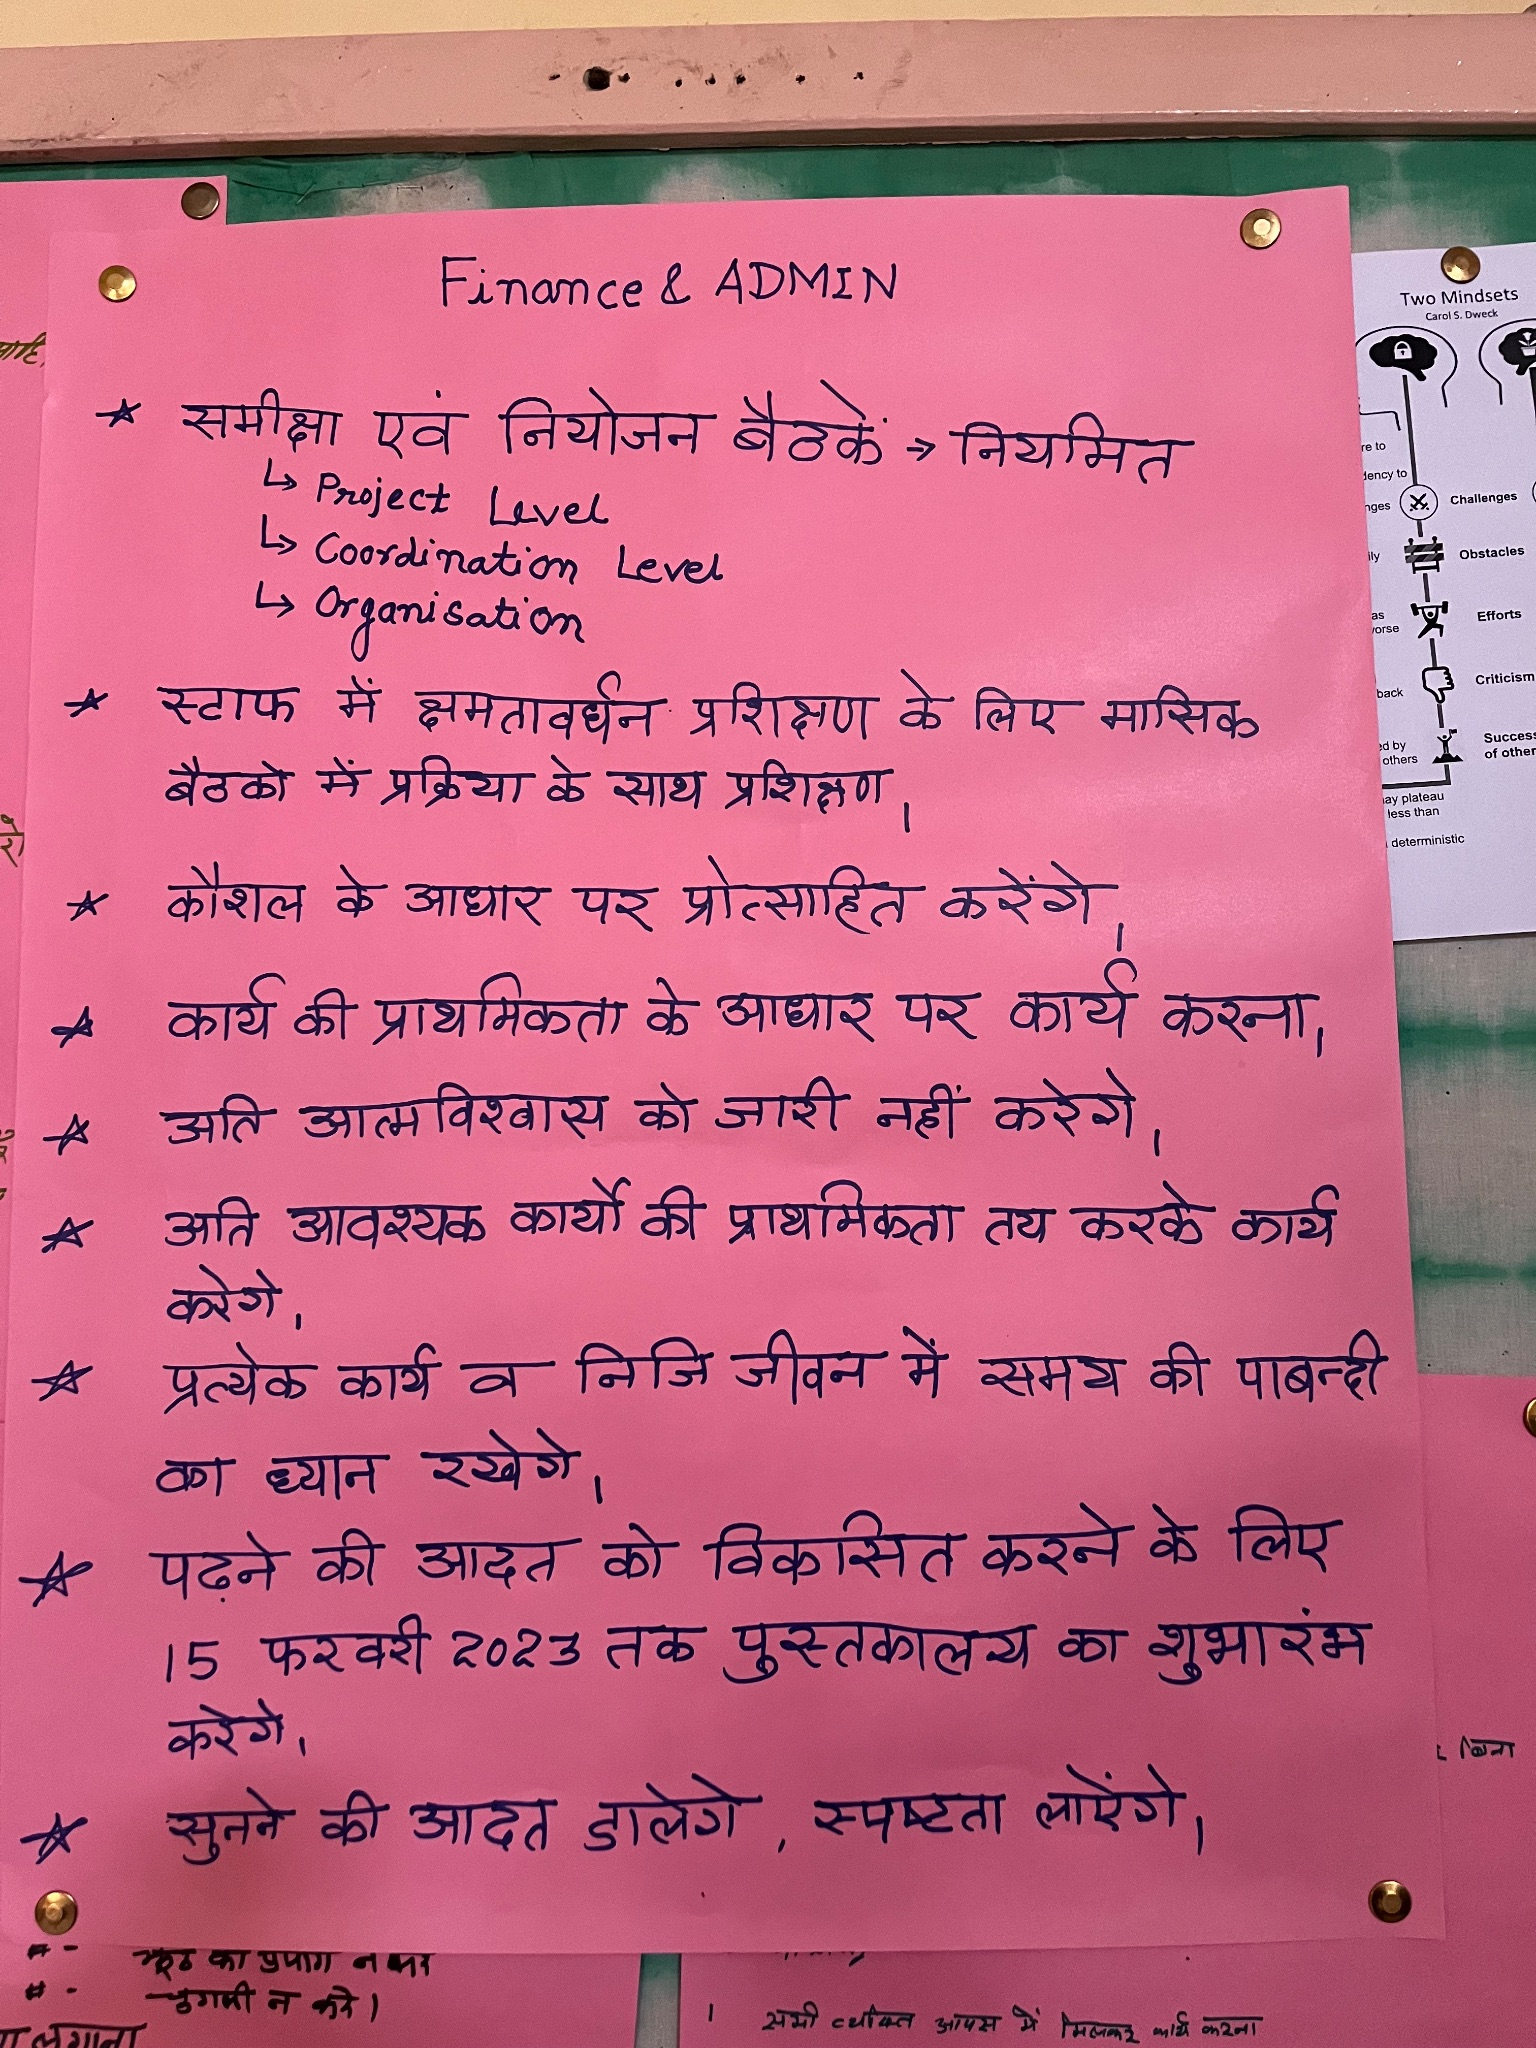 Finance & ADMIN
☆ समीक्षा एवं नियोजन बैठकें → नियमित
↳ Project Level
↳ Coordination Level
↳ Organisation
☆ स्टाफ में क्षमतावर्धन प्रशिक्षण के लिए मासिक
बैठको में प्रक्रिया के साथ प्रशिक्षण।
☆ कौशल के आधार पर प्रोत्साहित करेंगे।
☆ कार्य की प्राथमिकता के आधार पर कार्य करना।
☆ अति आत्मविश्वास को जारी नहीं करेगे।
☆ अति आवश्यक कार्यो की प्राथमिकता तय करके कार्य
करेगे।
☆ प्रत्येक कार्य व निजि जीवन में समय की पाबन्दी
का ध्यान रखेगे।
☆ पढ़ने की आदत को विकसित करने के लिए
15 फरवरी 2023 तक पुस्तकालय का शुभारंभ
करेगे।
☆ सुनने की आदत डालेगे, स्पष्टता लाऐंगे।
Two Mindsets
Carol S. Dweck
re to
dency to
nges
Challenges
ily
Obstacles
as
vorse
Efforts
back
Criticism
ed by
others
Success
of other
ay plateau
less than
deterministic
बिना
# - झूठ का प्रयोग न करे
# - चुगली न करे।
लगाना
1 सभी व्यक्ति आपस में मिलकर कार्य करना